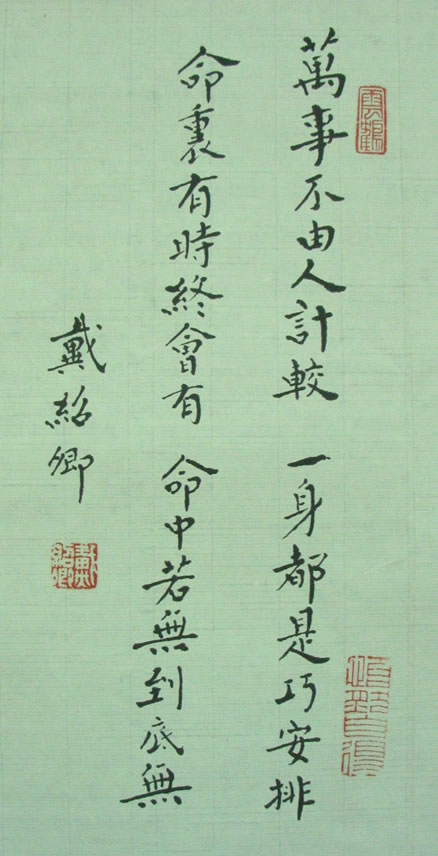 萬事不由人計較 一身都是巧安排
命裏有時終會有 命中若無到底無
戴紹卿
戴紹卿